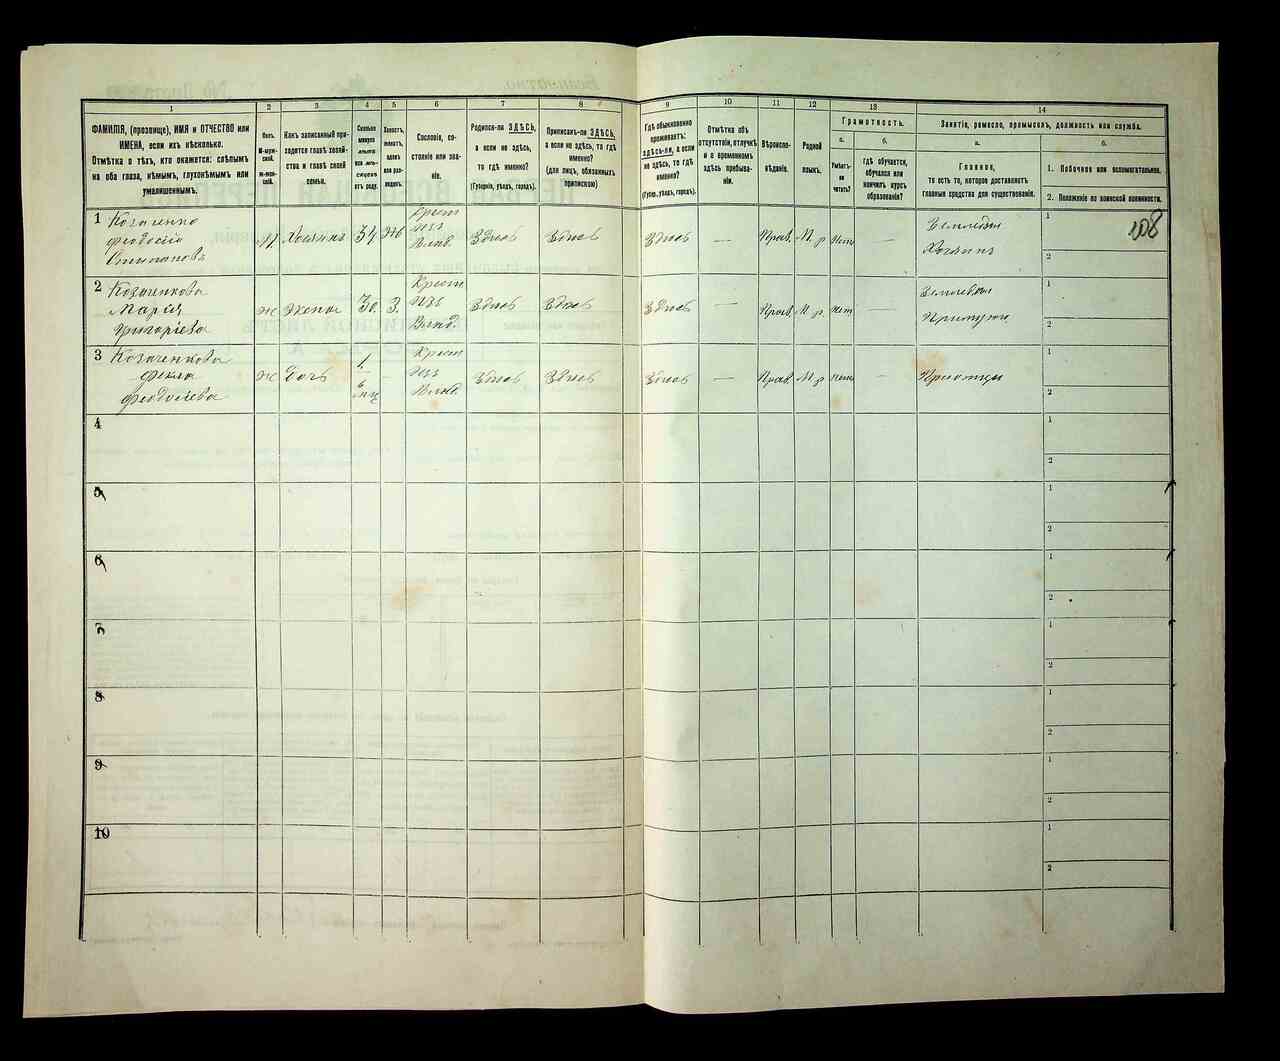 1
2
3
4
5
6
7
8
9
10
11
12
13
14
ФАМИЛІЯ, (прозвище), ИМЯ и ОТЧЕСТВО или
ИМЕНА, если ихъ нѣсколько.
Отмѣтка о тѣхъ, кто окажется: слѣпымъ
на оба глаза, нѣмымъ, глухонѣмымъ или
умалишеннымъ.
Полъ.
М-муж-
ской.
Ж-жен-
скій.
Какъ записанный при-
ходится главѣ хозяй-
ства и главѣ своей
семьи.
Сколько
минуло
лѣтъ
или мѣ-
сяцевъ
отъ роду.
Холостъ,
женатъ,
вдовъ
или раз-
веденъ.
Сословіе, со-
стояніе или зва-
ніе.
Родился-ли ЗДѢСЬ,
а если не здѣсь,
то гдѣ именно?
(Губернія, уѣздъ, городъ).
Приписанъ-ли ЗДѢСЬ,
а если не здѣсь, то гдѣ
именно?
(для лицъ, обязанныхъ
припискою)
Гдѣ обыкновенно
проживаетъ:
здѣсь-ли, а если
не здѣсь, то гдѣ
именно?
(Губер., уѣздъ, городъ).
Отмѣтка объ
отсутствіи, отлучкѣ
и о временномъ
здѣсь пребыва-
ніи.
Вѣроиспо-
вѣданіе.
Родной
языкъ.
Грамотность.
а.
Умѣетъ-
ли
читать?
б.
гдѣ обучается,
обучался или
кончилъ курсъ
образованія?
Занятіе, ремесло, промыселъ, должность или служба.
а.
Главное,
то есть то, которое доставляетъ
главныя средства для существованія.
б.
1. Побочное или вспомогательное.
2. Положеніе по воинской повинности.
1 Козаченко
Феодосій
Степановъ
М Хозяинъ 34 Ж Крест
изъ
Влад.
Здѣсь Здѣсь Здѣсь — Прав. М. р. Нет —
Хозяинъ
1
2
108
2 Козаченкова
Марія
Григоріева
ж Жена 30. З. Крест
изъ
Влад.
Здѣсь Здѣсь Здѣсь — Прав. М. р. Нет —
1
2
3 Козаченкова
Фекла
Феодосіева
ж Дочь 1. 6 мц — Крест
изъ
Влад.
Здѣсь Здѣсь Здѣсь — Прав. М. р. Нет —
1
2
4
1
2
5
1
2
6
1
2
7
1
2
8
1
2
9
1
2
10
1
2